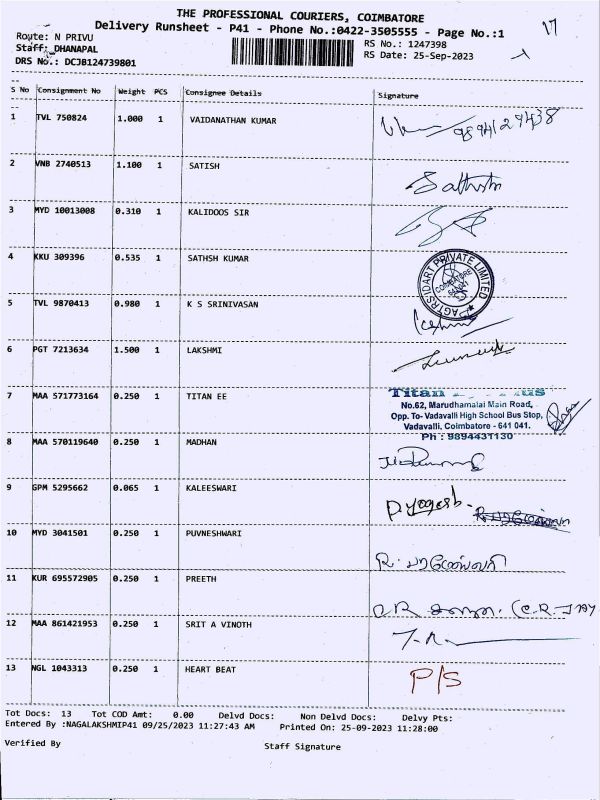 THE PROFESSIONAL COURIERS, COIMBATORE
17
Delivery Runsheet - P41 - Phone No.:0422-3505555 - Page No.:1
Route: N PRIVU
RS No.: 1247398
Staff: DHANAPAL
RS Date: 25-Sep-2023
DRS No.: DCJB124739801
S No Consignment No Weight PCS Consignee Details Signature
1 TVL 750824 1.000 1 VAIDANATHAN KUMAR 9894129438
2 VNB 2740513 1.100 1 SATISH Sathish
3 MYD 10013008 0.310 1 KALIDOOS SIR
4 KKU 309396 0.535 1 SATHSH KUMAR
PRIVATE LIMITED
COIMBATORE
641 041
5 TVL 9870413 0.980 1 K S SRINIVASAN
6 PGT 7213634 1.500 1 LAKSHMI
7 MAA 571773164 0.250 1 TITAN EE
Titan
No.62, Marudhamalai Main Road,
Opp. To- Vadavalli High School Bus Stop,
Vadavalli, Coimbatore - 641 041.
Ph : 9894431130
8 MAA 570119640 0.250 1 MADHAN
9 GPM 5295662 0.065 1 KALEESWARI P. Yogesh.
10 MYD 3041501 0.250 1 PUVNESHWARI
11 KUR 695572905 0.250 1 PREETH
12 MAA 861421953 0.250 1 SRIT A VINOTH
13 NGL 1043313 0.250 1 HEART BEAT P/S
Tot Docs: 13 Tot COD Amt: 0.00 Delvd Docs: Non Delvd Docs: Delvy Pts:
Entered By :NAGALAKSHMIP41 09/25/2023 11:27:43 AM Printed On: 25-09-2023 11:28:00
Verified By
Staff Signature